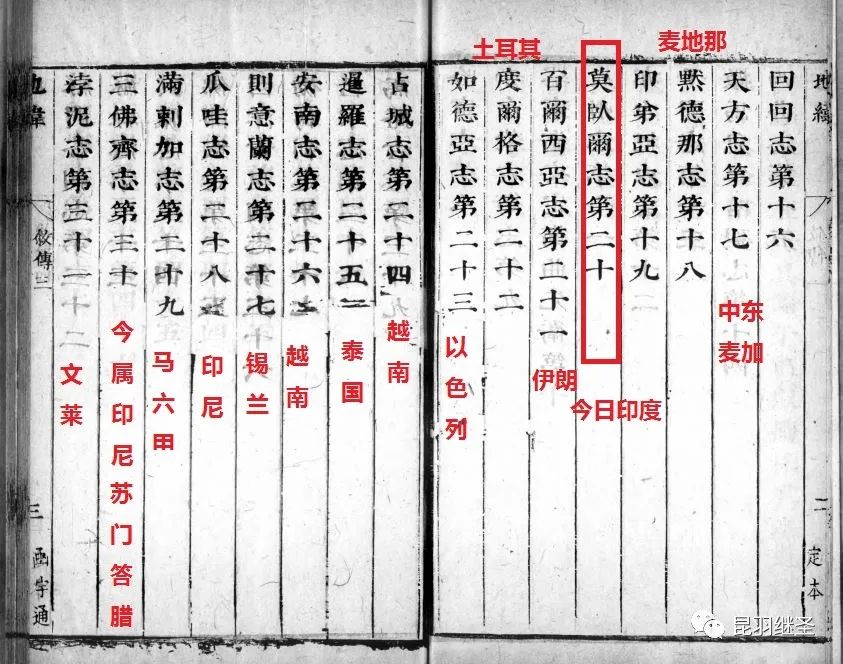 地緯
二
定本
回回志第十六
天方志第十七
中东
麦加
默德那志第十八
麦地那
印第亞志第十九
莫臥爾志第二十
今日印度
百爾西亞志第二十一
伊朗
度爾格志第二十二
土耳其
如德亞志第二十三
以色列
占城志第二十四
越南
暹羅志第二十五
泰国
安南志第二十六
越南
則意蘭志第二十七
锡兰
瓜哇志第二十八
印尼
滿剌加志第二十九
马六甲
三佛齊志第三十
今属印尼苏门答腊
浡泥志第三十一
文莱
地緯
敘傳
三
函宇通
昆羽继圣